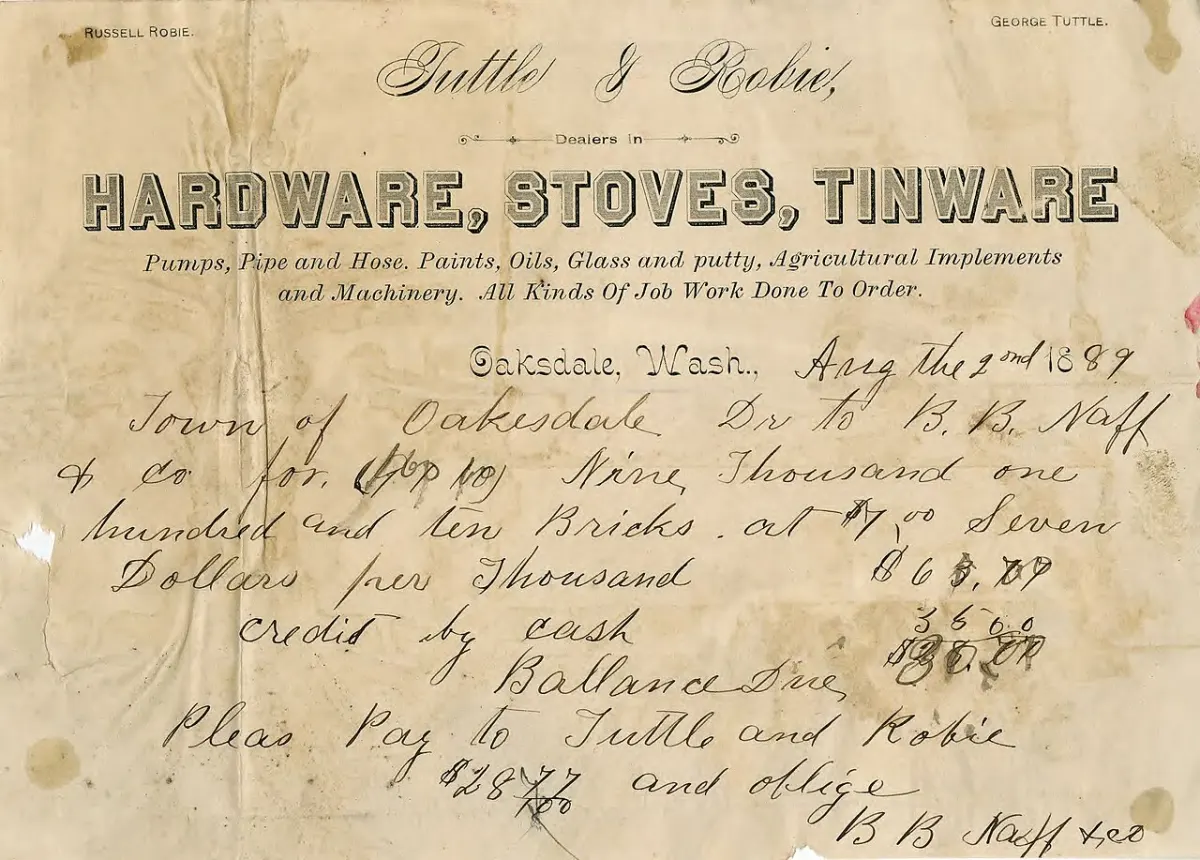 RUSSELL ROBIE.
GEORGE TUTTLE.
Tuttle & Robie,
Dealers In
HARDWARE, STOVES, TINWARE
Pumps, Pipe and Hose. Paints, Oils, Glass and putty, Agricultural Implements
and Machinery. All Kinds Of Job Work Done To Order.
Oaksdale, Wash., Aug the 2nd 1889
Town of Oakesdale Dr to B. B. Naff
& co for. Nine Thousand one
hundred and ten Bricks. at $7,00 Seven
Dollars per Thousand
credit by cash 35 00
Ballance Due,
Pleas Pay to Tuttle and Robie
$28 77/100 and oblige
B B Naff & co